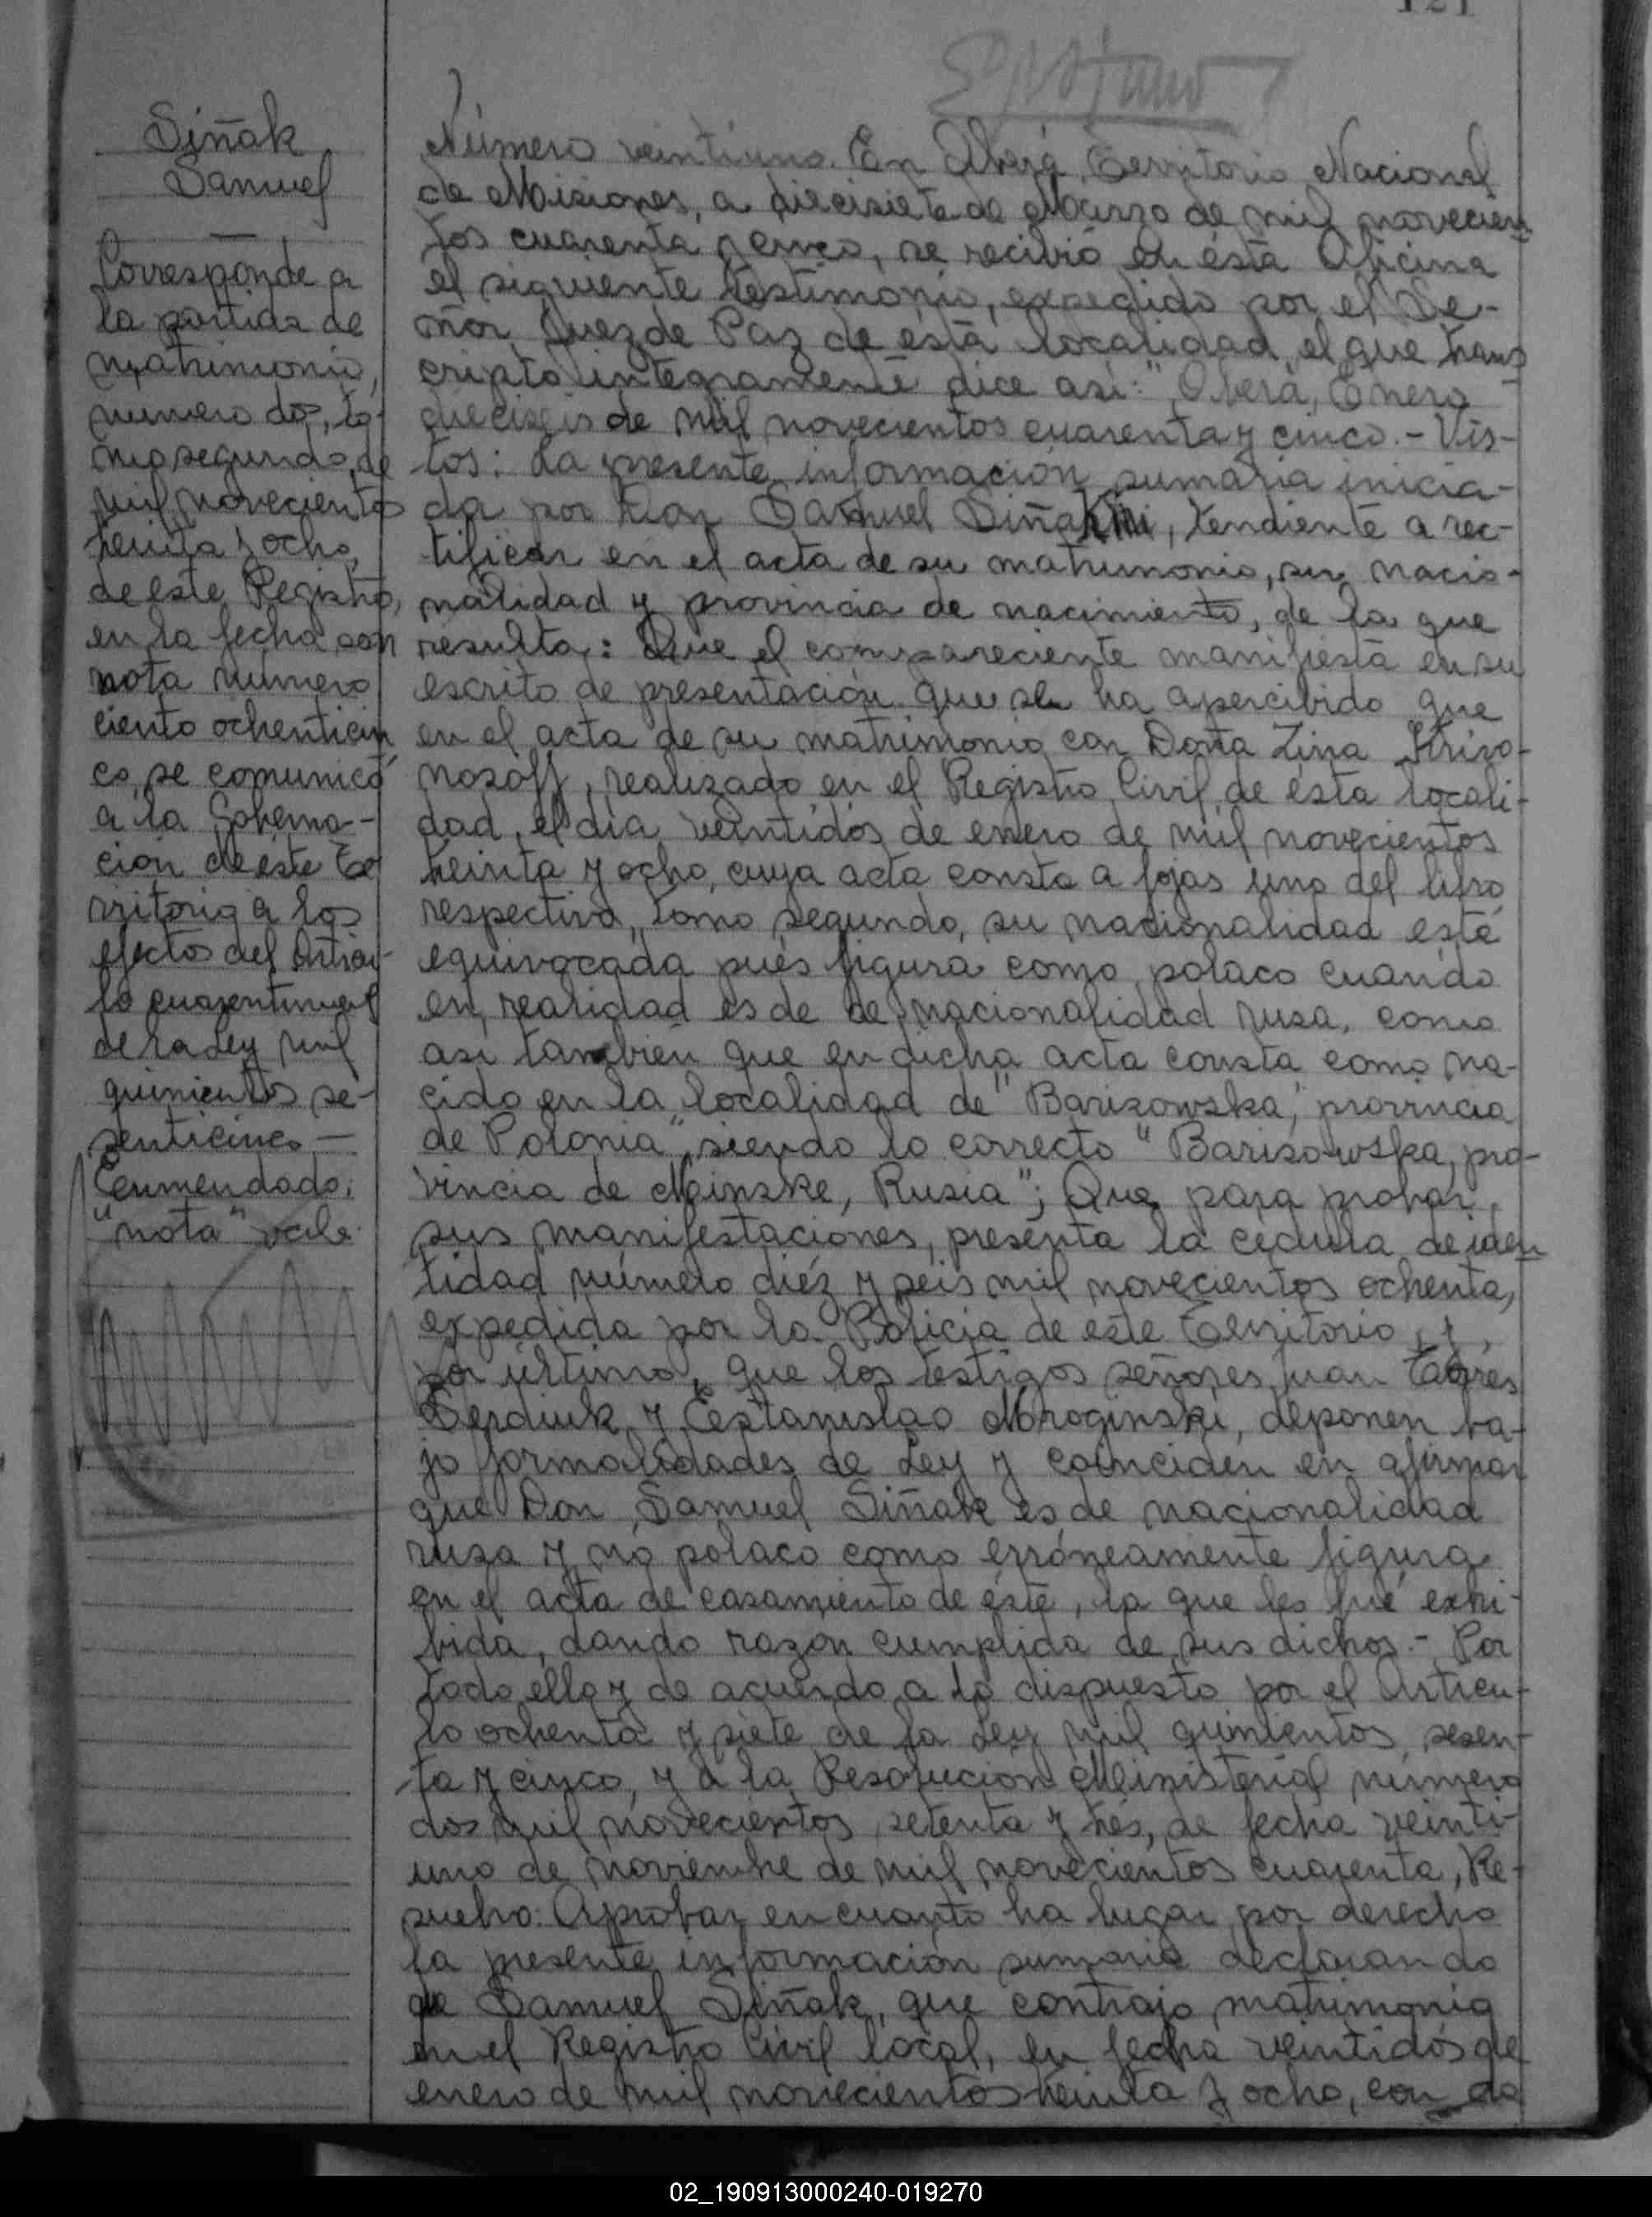 121
Siñak
Samuel
Corresponde a
la partida de
matrimonio,
número dos, to-
mo segundo, de
mil novecientos
treinta y ocho,
de este Registro,
en la fecha con
nota número
ciento ochenticin
co, se comunicó
a la Goberna-
ción de éste Te
rritorio a los
efectos del Artícu-
lo
de la Ley mil
quinientos se-
senticinco —
Enmendado:
"nota" vale.
Número veintiuno. En Oberá, Territorio Nacional
de Misiones, a diecisiete de Marzo de mil novecien
tos cuarenta y cinco, se recibió en ésta Oficina
el siguiente testimonio, expedido por el Se-
ñor Juez de Paz de ésta localidad, el que trans
cripto íntegramente dice así: "Oberá, Enero
dieciseis de mil novecientos cuarenta y cinco.- Vis-
tos: La presente información sumaria inicia-
da por Don Samuel Siñak, tendiente a rec-
tificar en el acta de su matrimonio, su nacio-
nalidad y provincia de nacimiento, de la que
resulta: Que el compareciente manifiesta en su
escrito de presentación que se ha apercibido que
en el acta de su matrimonio con Doña Zina Krivo-
nozoff, realizado en el Registro Civil de ésta locali-
dad, el día veintidós de enero de mil novecientos
treinta y ocho, cuya acta consta a fojas uno del libro
respectivo, tomo segundo, su nacionalidad está
equivocada pués figura como polaco cuando
en realidad es de de nacionalidad rusa, como
así también que en dicha acta consta como na-
cido en la localidad de "Barizowska, provincia
de Polonia", siendo lo correcto "Barizowska, pro-
vincia de Mainske, Rusia"; Que para probar
sus manifestaciones, presenta la cédula de iden
tidad número diéz y seis mil novecientos ochenta,
expedida por la Policía de este Territorio y,
por último, que los testigos señores Juan
Serdiuk y Estanislao Mroginski, deponen ba-
jo formalidades de Ley y coinciden en afirmar
que Don Samuel Siñak es de nacionalidad
rusa y no polaco como erróneamente figura
en el acta de casamiento de éste, la que les fué exhi-
bida, dando razón cumplida de sus dichos.- Por
todo ello y de acuerdo a lo dispuesto por el Artícu-
lo ochenta y siete de la Ley mil quinientos sesen-
ta y cinco, y a la Resolución Ministerial número
dos mil novecientos setenta y trés, de fecha veinti-
uno de noviembre de mil novecientos cuarenta, Re-
suelvo: Aprobar en cuanto ha lugar por derecho
la presente información sumaria declarando
que Samuel Siñak, que contrajo matrimonio
en el Registro Civil local, en fecha veintidós de
enero de mil novecientos treinta y ocho, con da
02_190913000240-019270